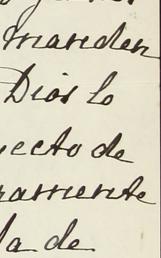 manden
Dios lo
yecto de
ramente
la de